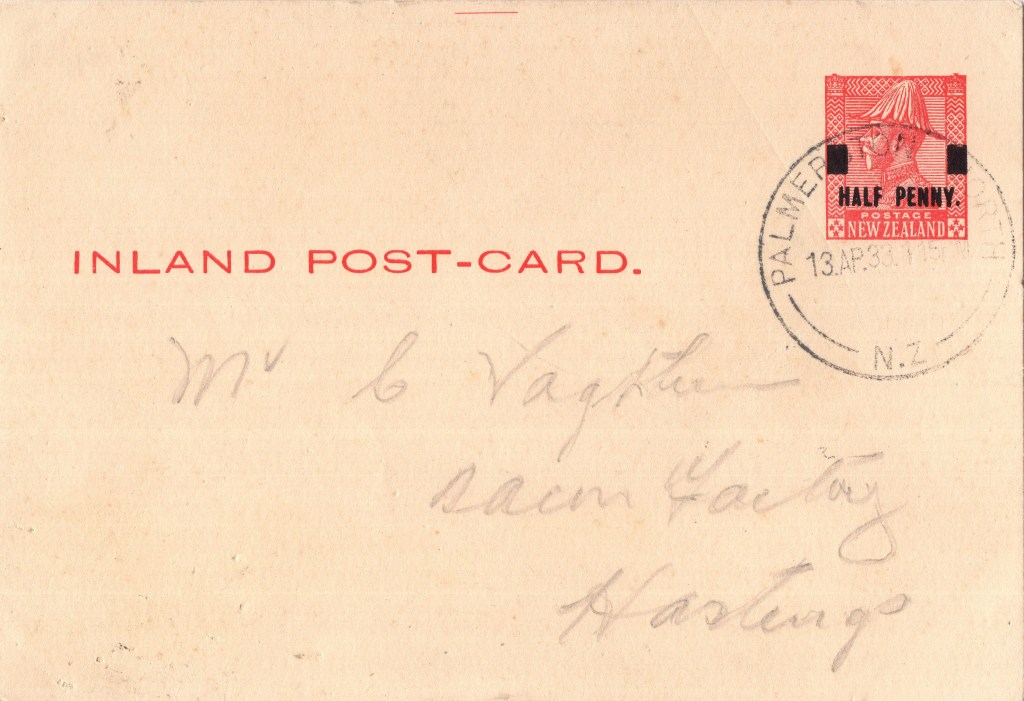 HALF PENNY.
POSTAGE
NEW ZEALAND
PALMERSTON NORTH
13.AP.33.1 15
N.Z
INLAND POST-CARD.
Mr C
Bacon Factory
Hastings